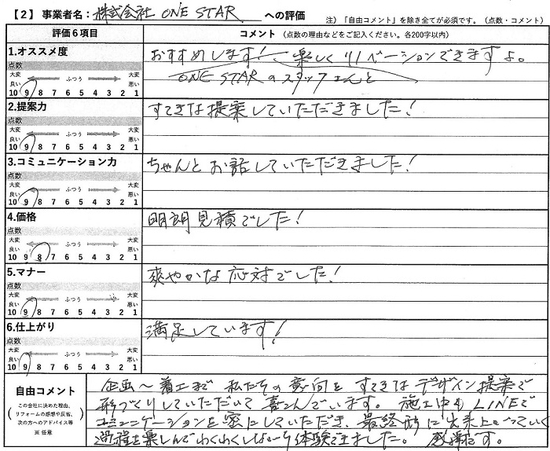 【2】事業者名：株式会社 ONE STAR への評価
注）「自由コメント」を除き全てが必須です。（点数・コメント）
評価6項目
コメント （点数の理由などをご記入ください。各200字以内）
1.オススメ度
点数
大変良い ふつう 大変悪い
10 9 8 7 6 5 4 3 2 1
おすすめします！楽しくリノベーションできますよ。
ONE STARのスタッフさんと
2.提案力
点数
大変良い ふつう 大変悪い
10 9 8 7 6 5 4 3 2 1
すてきな提案していただきました！
3.コミュニケーション力
点数
大変良い ふつう 大変悪い
10 9 8 7 6 5 4 3 2 1
ちゃんとお話していただきました！
4.価格
点数
大変良い ふつう 大変悪い
10 9 8 7 6 5 4 3 2 1
明朗見積でした！
5.マナー
点数
大変良い ふつう 大変悪い
10 9 8 7 6 5 4 3 2 1
爽やかな応対でした！
6.仕上がり
点数
大変良い ふつう 大変悪い
10 9 8 7 6 5 4 3 2 1
満足しています！
自由コメント
この会社に決めた理由、
リフォームの感想や反省、
次の方へのアドバイス等
※ 任意
企画～着工まで 私たちの意向を すてきなデザイン提案で
形づくりしていただいて喜こんでいます。 施工中も LINEで
コミュニケーションを密にしていただき、最終形に出来上がっていく
過程を楽しんでわくわくしながら体験できました。 感謝です。